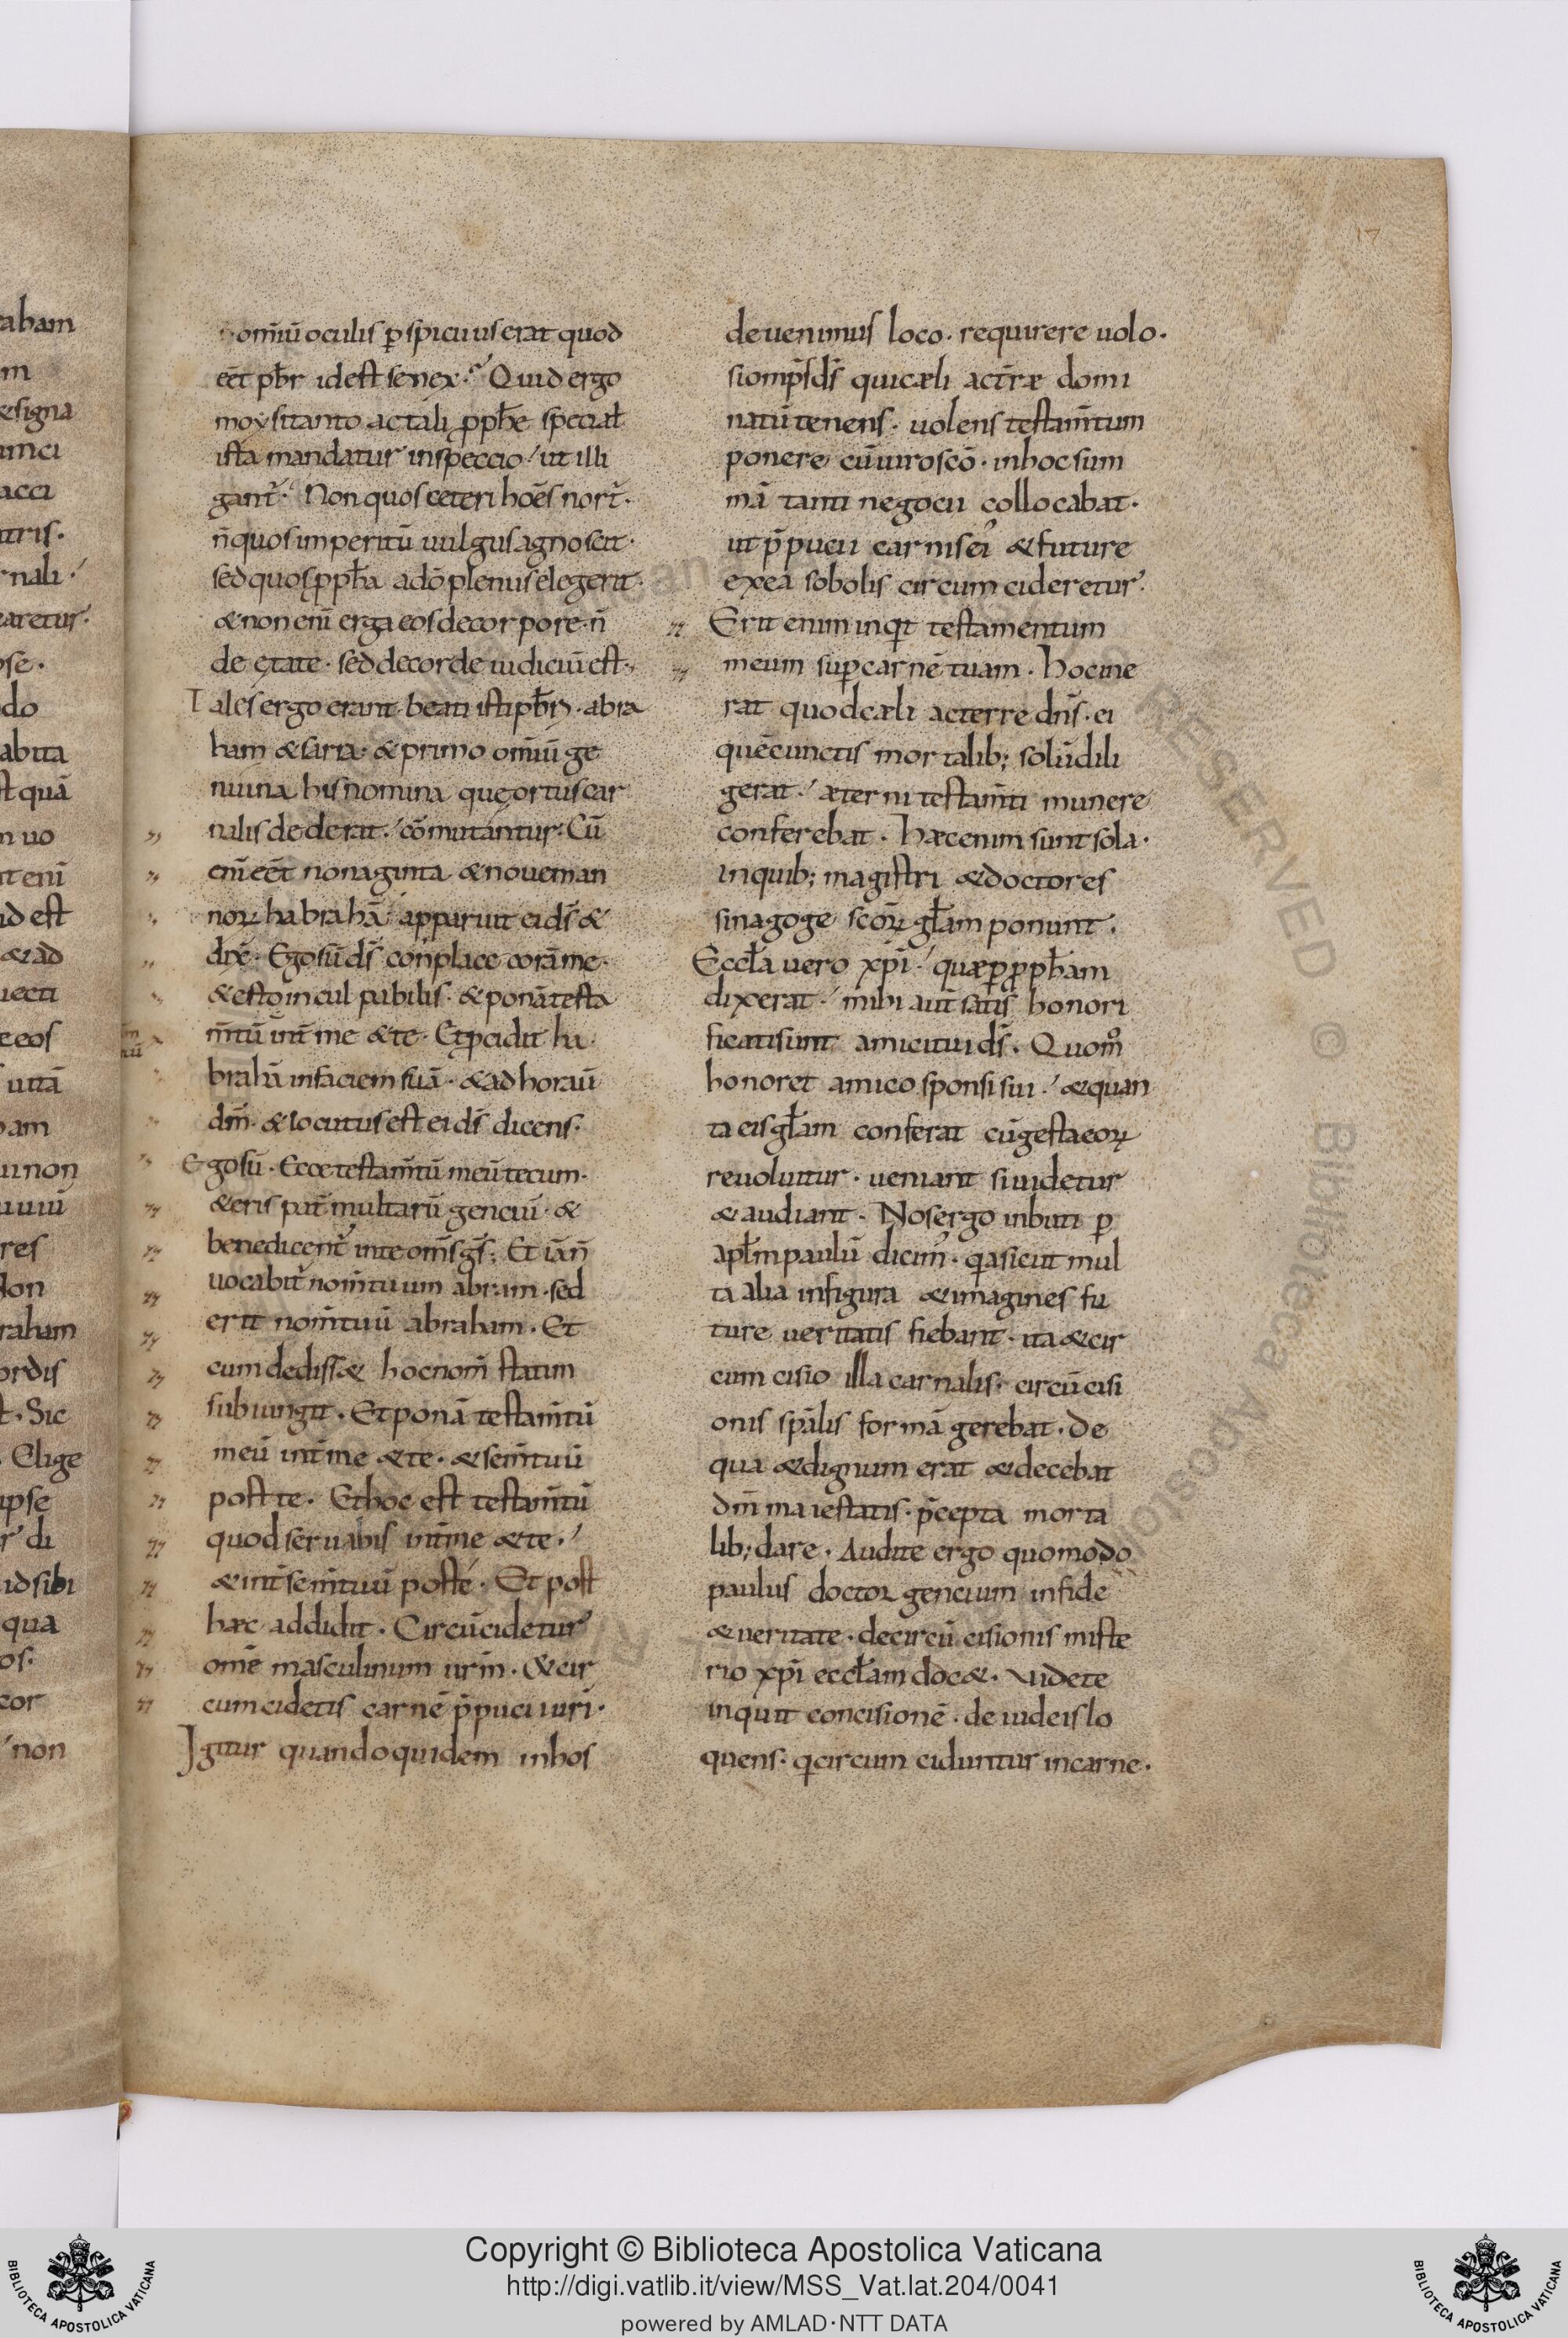 17
omīu oculis ꝑspicuus erat quod
eēt pbr̄ id est senex. Quid ergo
moysi tanto ac tali ꝓphe special
ista mandatur inspeccio ut illi
gant᷑. Non quos ceteri hoēs nort᷑.
n̄ quos imperitū uulgus agnoscit.
sed quos ꝓpha adō plenus elegerit.
& non enī erga eos de corpore. n̄
de ętate. sed de corde iudiciū est.
Tales ergo erant beati isti pbr̄i. abra
ham & sarra. & primo omīu ge
nuina his nomina que ortus car
nalis dederat. cōmutantur. Cū
enī eēt nonaginta & nouem an
noꝝ habrahā. apparuit ei ds̄ &
dix̄. Ego sū ds̄ conplace corā me.
& esto inculpabilis. & ponā testa
m̄tū int̄ me & te. Et ꝓcidit ha
brahā in faciem suā. & adhorauī
dm̄. & locutus est ei ds̄ dicens.
Ego sū. Ecce testam̄tū meū tecum.
& eris pat̄ multarū genciū. &
benedicent᷑ in te om̄s gs̄. Et iā n̄
uocabit᷑ nom̄ tuum abram. sed
erit nom̄ tuū abraham. Et
cum dediss& hoc nom̄ statim
subiungit. Et ponā testam̄tū
meū int̄ me & te. & sem̄ tuū
post te. Et hoc est testam̄tū
quod seruabis int̄ me & te.
& int̄ sem̄ tuū post te. Et post
hæc addidit. Circūcidetur
om̄e masculinum ur̄m. & cir
cumcidetis carnē p̄puci uri᷑.
Igitur quandoquidem in hos
deuenimus loco. requirere uolo.
si omp̄s ds̄ qui cæli ac tr̄æ domi
natū tenens. uolens testam̄tum
ponere cū uiro scō. in hoc sum
mā tanti negocii collocabat.
ut p̄pucii carnis ei᷒ & future
ex ea sobolis circumcideretur.
Erit enim inqt testamentum
meum suꝑ carnē tuam. Hocine
rat quod cæli ac terre dn̄s. ei
quē cunctis mortalib; solū dili
gerat. æterni testam̄ti munere
conferebat. Hæc enim sunt sola.
in quib; magistri & doctores
sinagoge scōꝝ glam ponunt.
Eccla uero xp̄i. quæ ꝑ ꝓpham
dixerat. mihi aut̄ satis honori
ficati sunt amici tui ds̄. Quom̊
honoret amico sponsi sui. & quan
ta eis glam conferat cū gesta eoꝝ
reuoluitur. ueniant si uidetur
& audiant. Nos ergo inbuti ꝑ
aplm paulū dicim᷒. qa sicut mul
ta alia in figura & imagines fu
ture ueritatis fiebant. ita & cir
cumcisio illa carnalis. circūcisi
onis spālis formā gerebat. De
qua & dignum erat & decebat
dm̄ maiestatis. p̄cepta morta
lib; dare. Audite ergo quomodo
paulus doctor gencium in fide
& ueritate. de circūcisionis miste
rio xp̄i ecclam doc&. Videte
inquit concisionē. de iudeis lo
quens. q circumciduntur in carne.
Copyright © Biblioteca Apostolica Vaticana
http://digi.vatlib.it/view/MSS_Vat.lat.204/0041
powered by AMLAD·NTT DATA
BIBLIOTECA APOSTOLICA VATICANA
BIBLIOTECA APOSTOLICA VATICANA